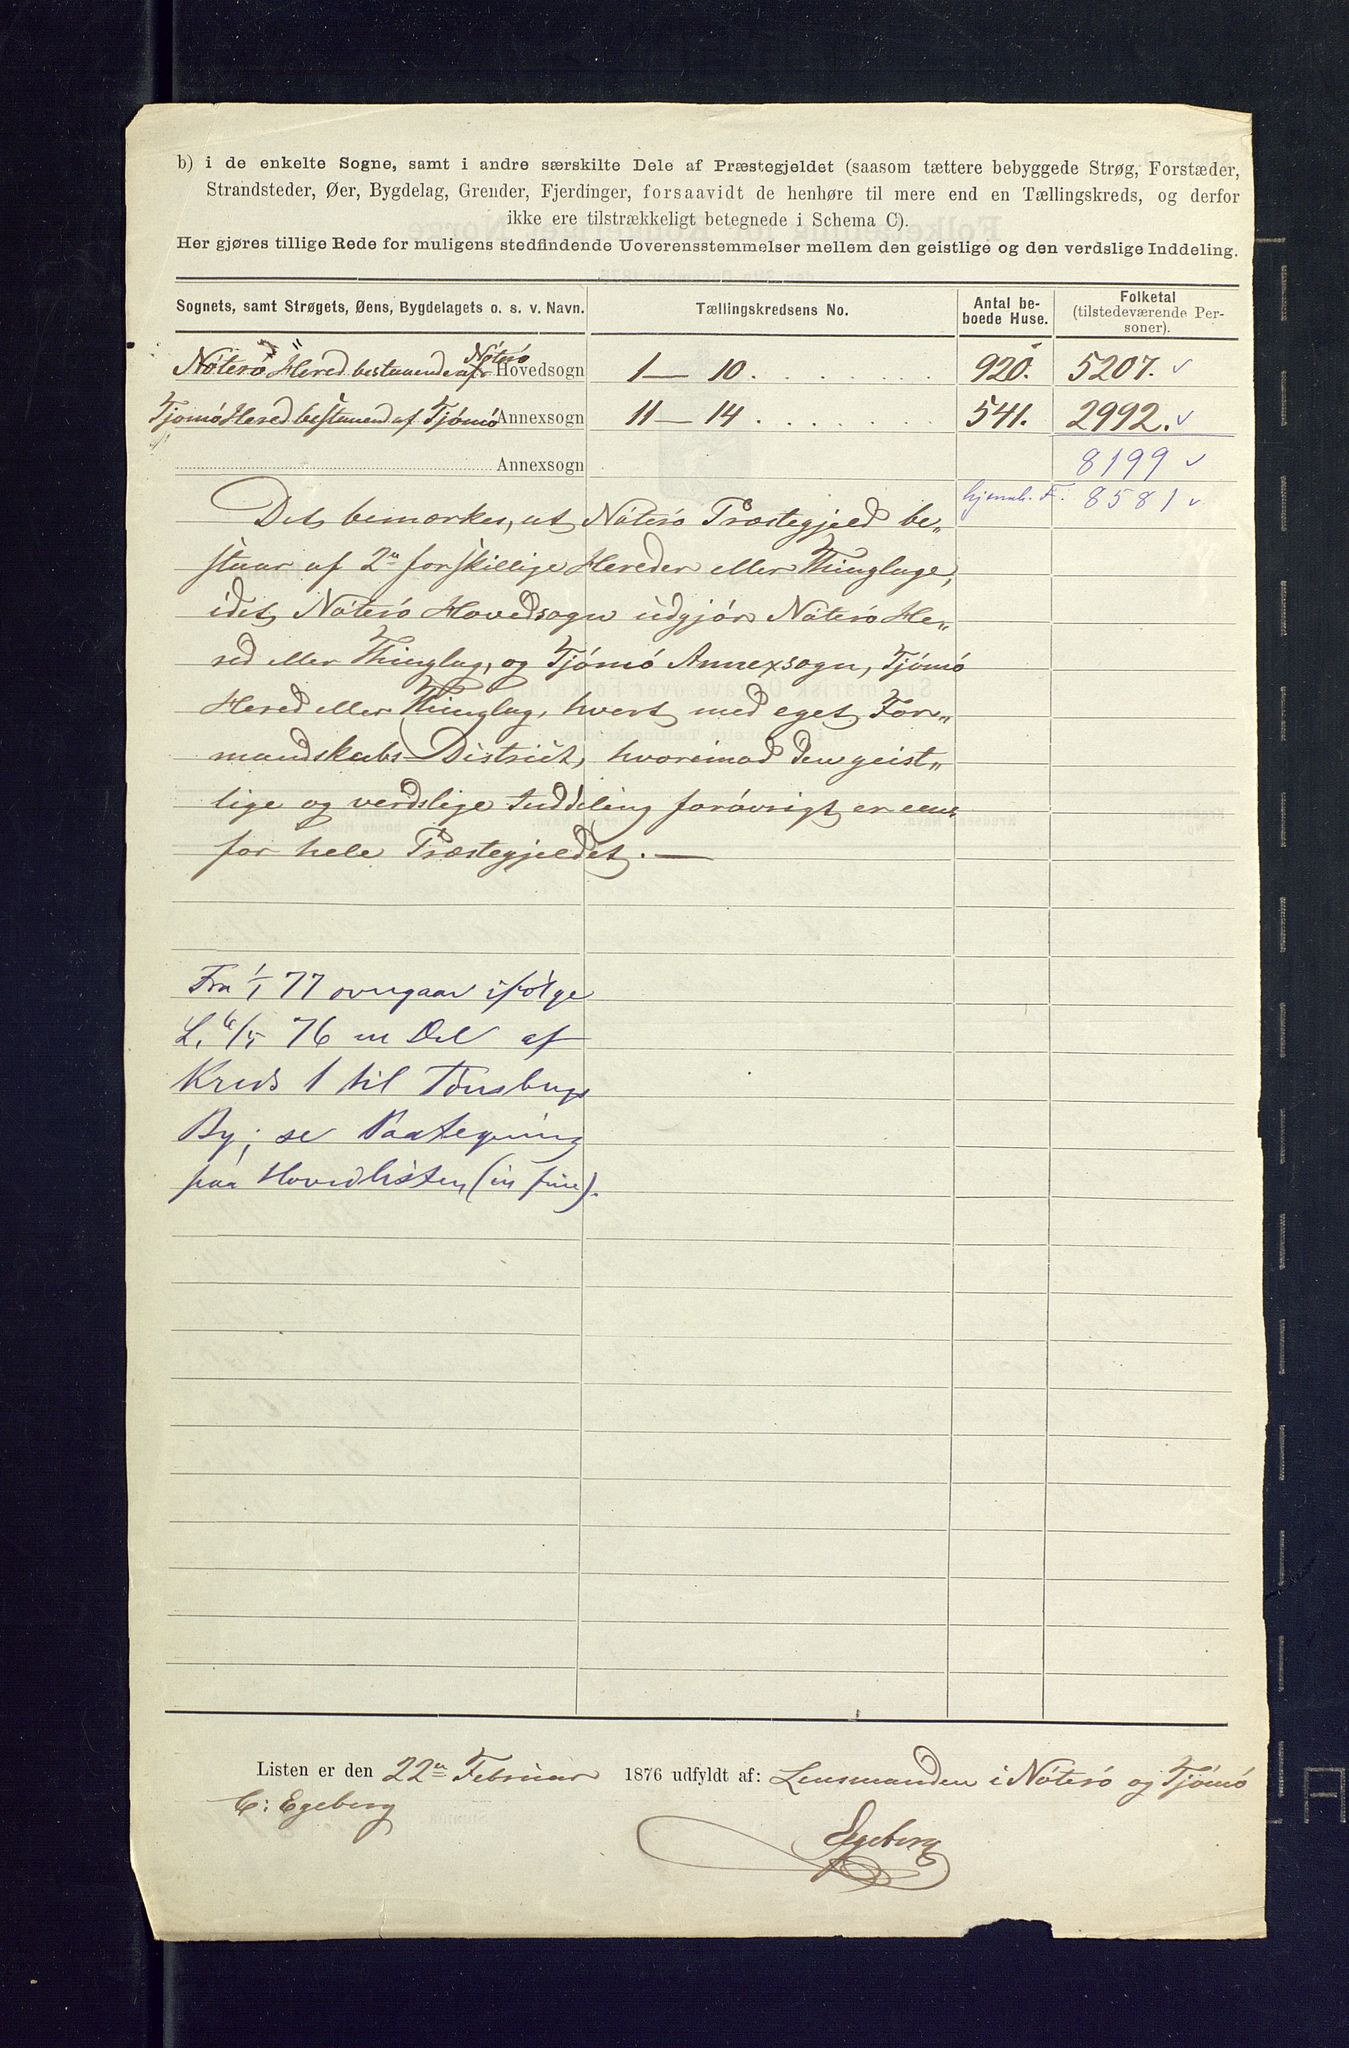 b) i de enkelte Sogne, samt i andre særskilte Dele af Præstegjeldet (saasom tættere bebyggede Strøg, Forstæder,
Strandsteder, Øer, Bygdelag, Grender, Fjerdinger, forsaavidt de henhøre til mere end en Tællingskreds, og derfor
ikke ere tilstrækkeligt betegnede i Schema C).
Her gjøres tillige Rede for muligens stedfindende Uoverensstemmelser mellem den geistlige og den verdslige Inddeling.
Sognets, samt Strøgets, Øens, Bygdelagets o. s. v. Navn. Tællingskredsens No. Antal beboede Huse. Folketal (tilstedeværende Personer).
Nøterø Hered bestaaende af Nøterø Hovedsogn 1 — 10 . . . . . . . . 920. 5207. ✓
Tjømø Hered bestaaend af Tjømø Annexsogn 11 — 14 . . . . . . . . 541. 2992. ✓
Annexsogn 8199 ✓
hjemh. F. 8581 ✓
Det bemærkes, at Nøterø Præstegjeld be-
staar af 2de forskillige Hereder eller Thinglage,
idet Nøterø Hovedsogn udgjør Nøterø He-
red eller Thinglag, og Tjømø Annexsogn, Tjømø
Hered eller Thinglag, hvert med eget For-
mandskabs District, hvorimod den geist-
lige og verdslige Inddeling forøvrigt er eens
for hele Præstegjeldet. —
Fra 1/1 77 overgaar ifølge
L. 6/5 76 en Del af
Kreds 1 til Tønsbergs
By; se Paategning
paa Hovedlisten (in fine).
Listen er den 22de Februar 1876 udfyldt af: Lensmanden i Nøterø og Tjømø
C: Egeberg
Egeberg